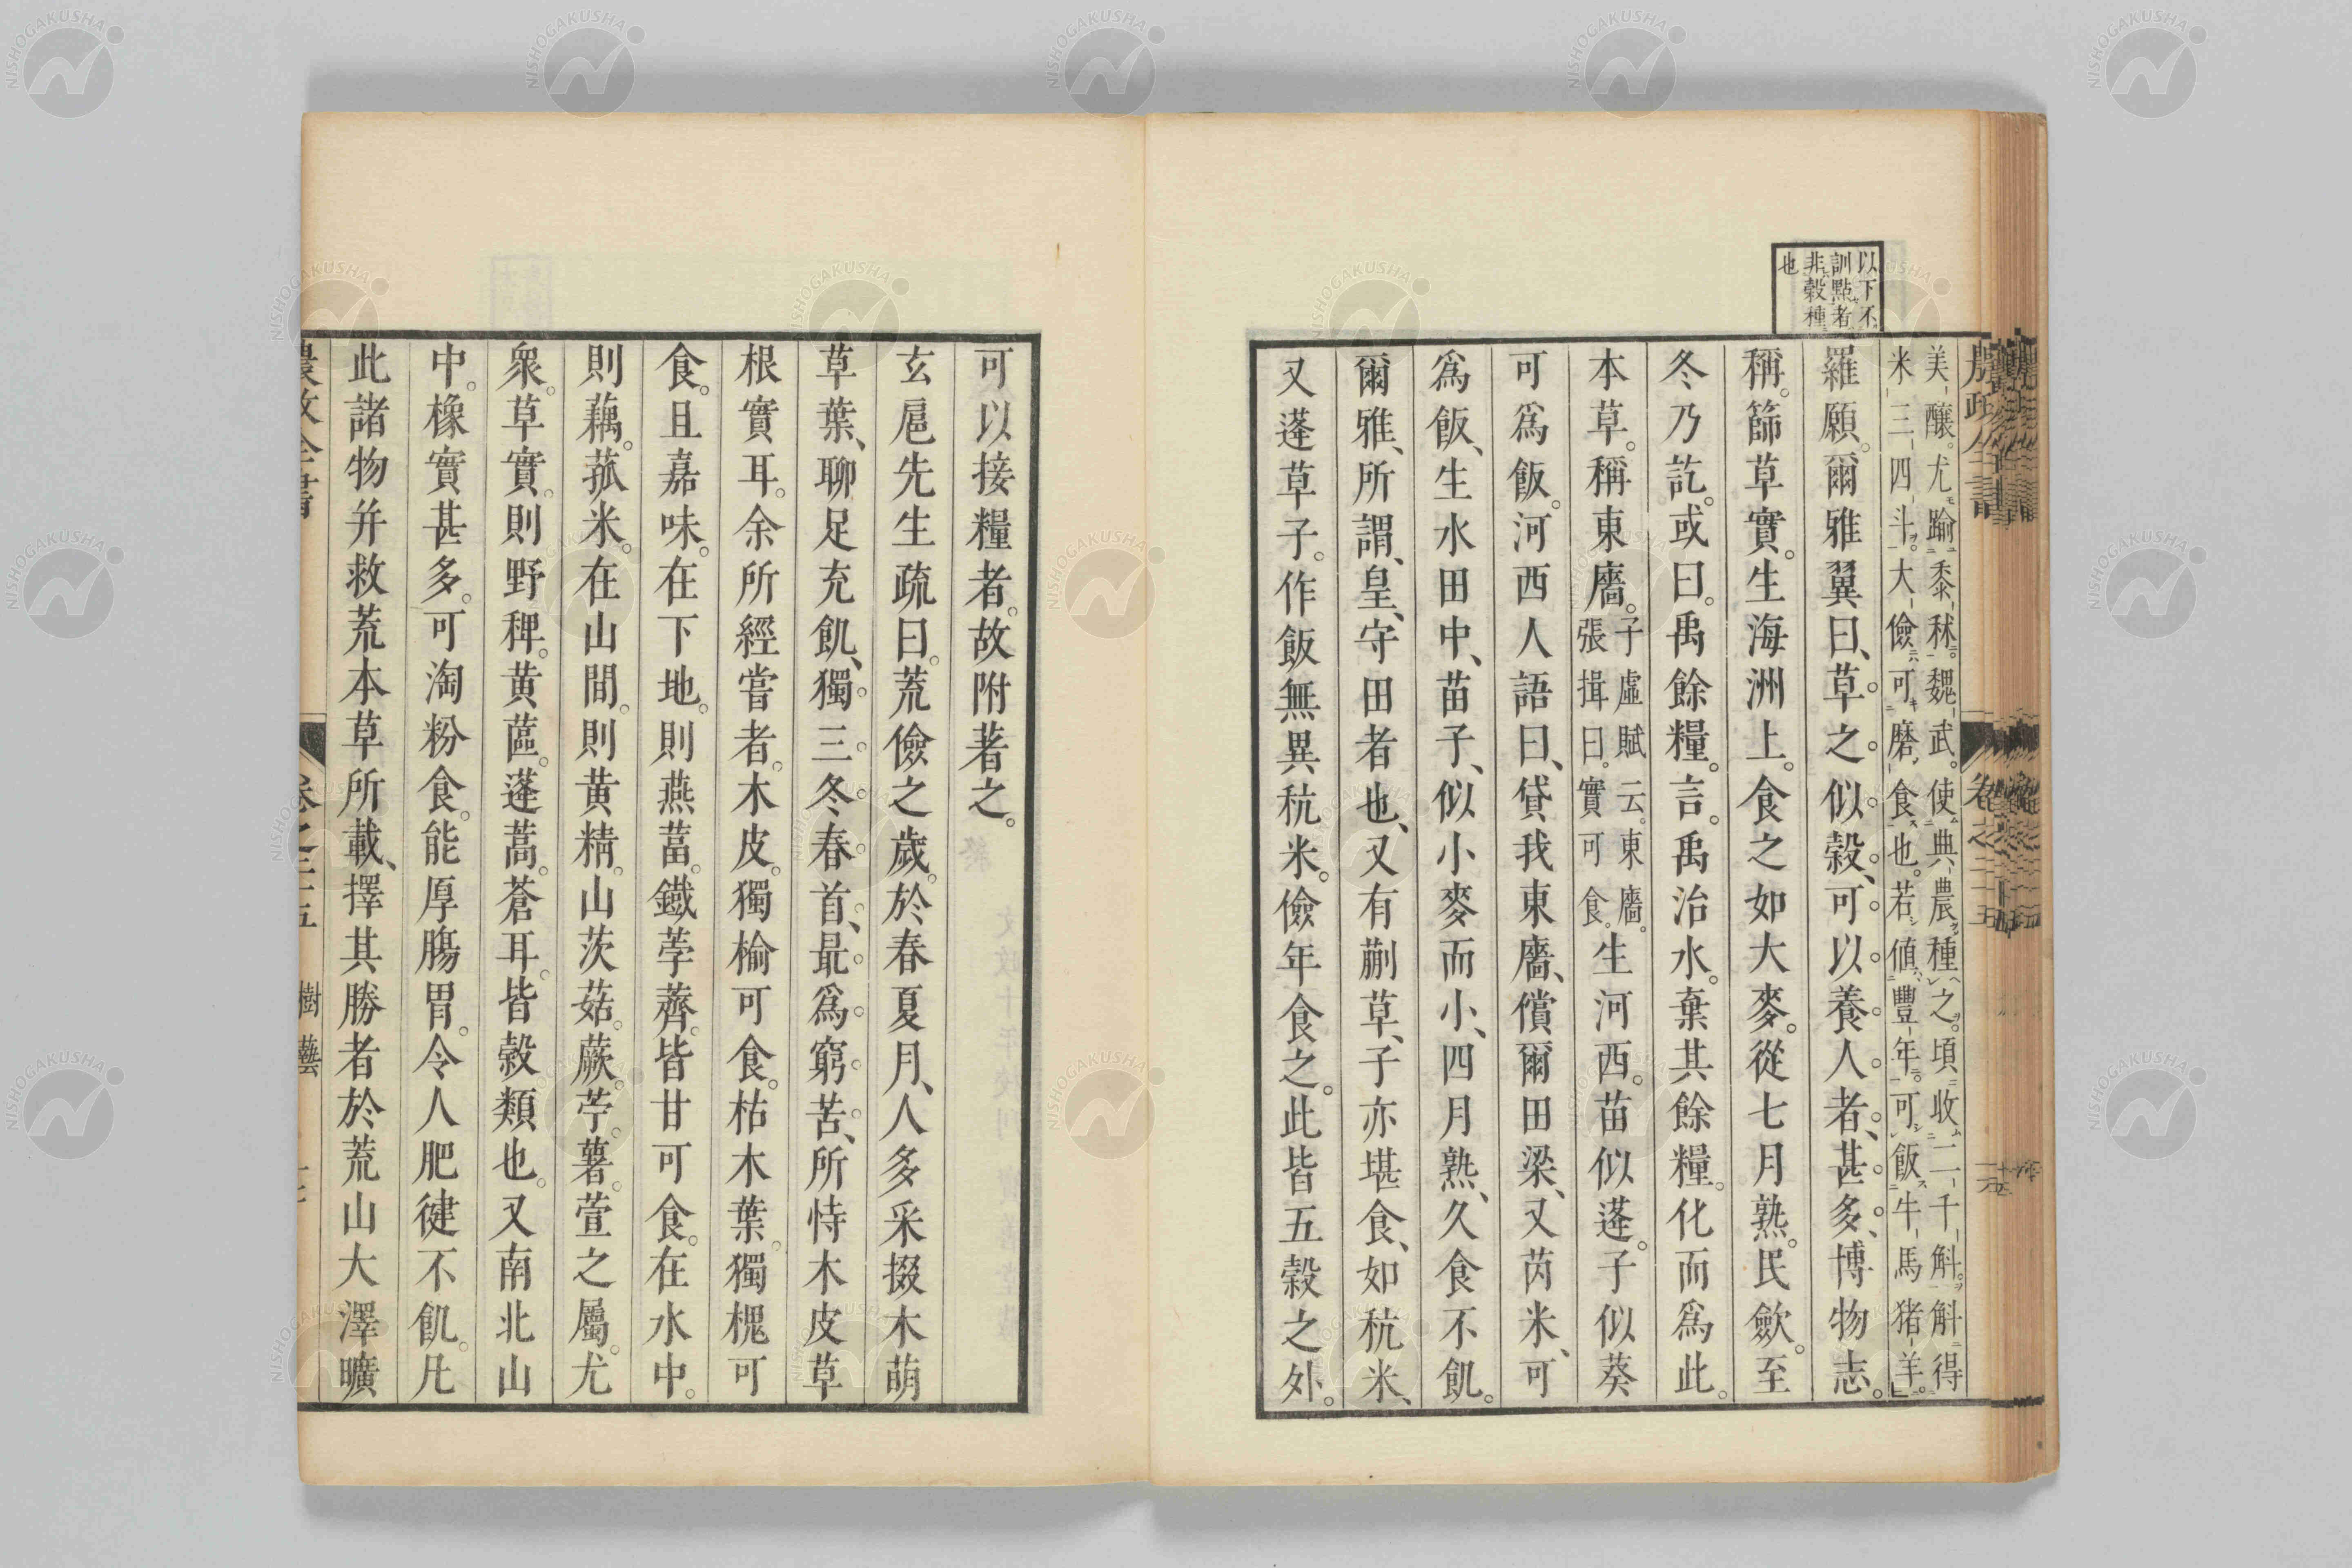 以下不
訓點者
非穀種
也
美釀。尤踰黍秫。魏武。使典農種之。頃收二千斛。斛得
米三四斗。大儉可磨食也。若値豐年。可飯牛馬猪羊。
羅願。爾雅翼曰、草之似穀、可以養人者、甚多、博物志。
稱。篩草實。生海洲上。食之如大麥。從七月熟。民歛。至
冬乃訖。或曰。禹餘糧。言。禹治水。棄其餘糧。化而爲此。
本草。稱東廧。子虛賦云。東廧。張揖曰。實可食。生河西。苗似蓬。子似葵
可爲飯。河西人語曰、貸我東廧、償爾田梁、又芮米、可
爲飯、生水田中、苗子、似小麥而小、四月熟、久食不飢。
爾雅、所謂、皇、守田者也、又有蒯草、子亦堪食、如秔米、
又蓬草子。作飯無異秔米。儉年食之。此皆五穀之外。
可以接糧者。故附著之。
玄扈先生疏曰。荒儉之歲。於春夏月、人多采掇木萌
草葉、聊足充飢、獨三冬春首、最爲窮苦、所恃木皮草
根實耳。余所經嘗者。木皮。獨榆可食。枯木葉。獨槐可
食。且嘉味。在下地。則燕葍。鐵荸薺。皆甘可食。在水中。
則藕。菰米。在山間。則黃精。山茨菇。蕨。苧。薯。萱之屬。尤
衆。草實。則野稗。黃䕮。蓬蒿。蒼耳。皆穀類也。又南北山
中。橡實甚多。可淘粉食。能厚腸胃。令人肥健不飢。凡
此諸物幷救荒本草所載、擇其勝者於荒山大澤曠
農政全書 卷之二十五 樹藝